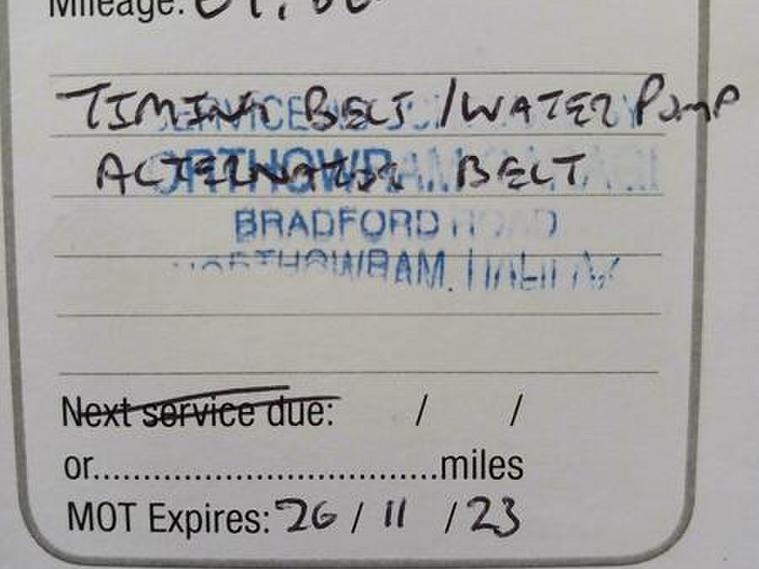 Mileage:
TIMING BELT / WATER PUMP
ALTERNATOR BELT
BRADFORD ROAD
NORTHOWRAM, HALIFAX
Next service due: / /
or..................................miles
MOT Expires: 26 / 11 / 23